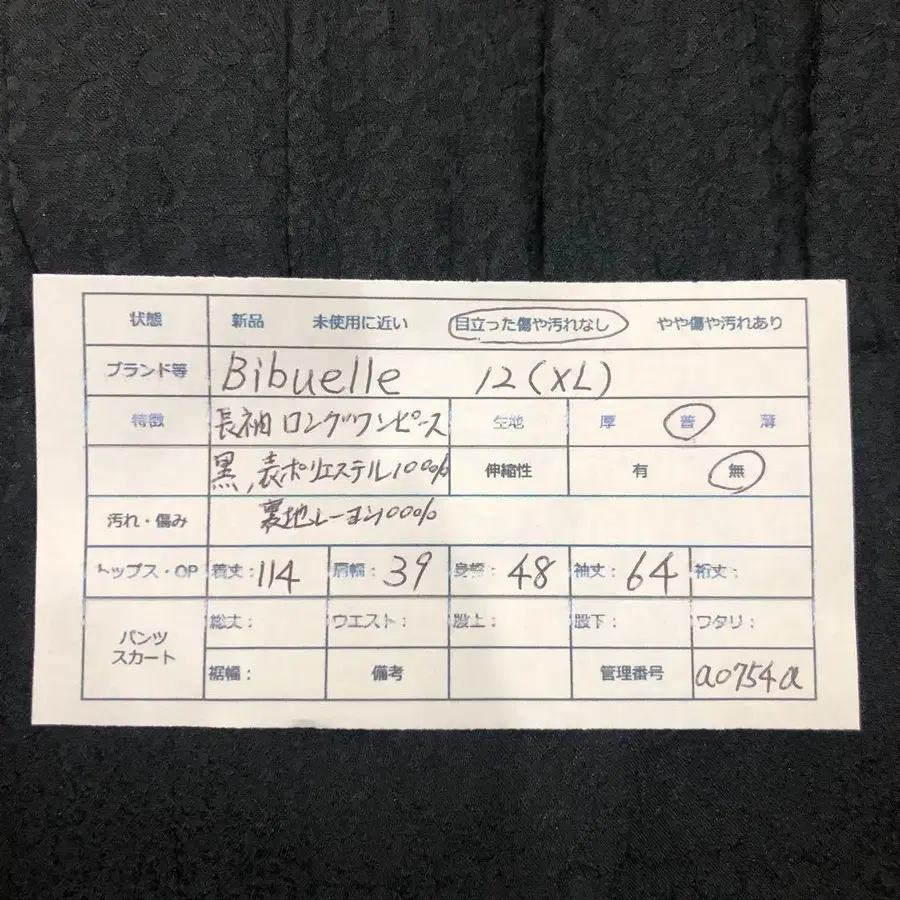 状態 新品 未使用に近い 目立った傷や汚れなし やや傷や汚れあり
ブランド等 Bibuelle 12(XL)
特徴 長袖ロングワンピース 生地 厚 普 薄
黒,表ポリエステル100% 伸縮性 有 無
汚れ・傷み 裏地レーヨン100%
トップス・OP 着丈:114 肩幅:39 身幅:48 袖丈:64 裄丈:
パンツ スカート 総丈: ウエスト: 股上: 股下: ワタリ:
裾幅: 備考 管理番号 a0754a